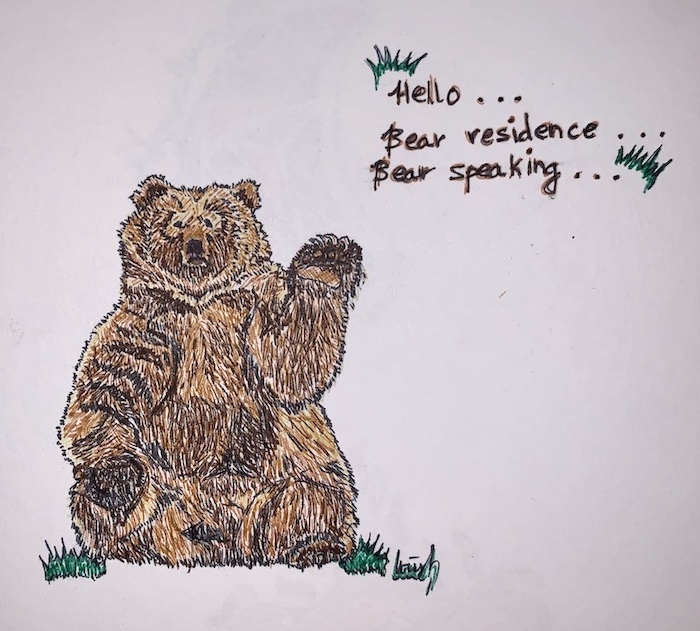 Hello ...
Bear residence ...
Bear speaking ...